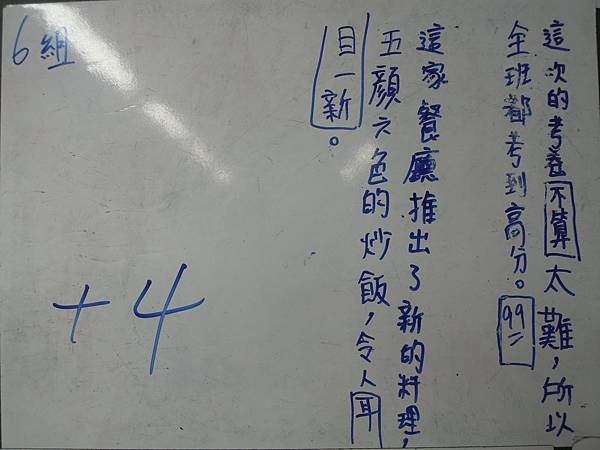 這次的考卷不算太難，所以
全班都考到高分。99=
這家餐廳推出了新的料理，
五顏六色的炒飯，令人耳
目一新。
6組
+4